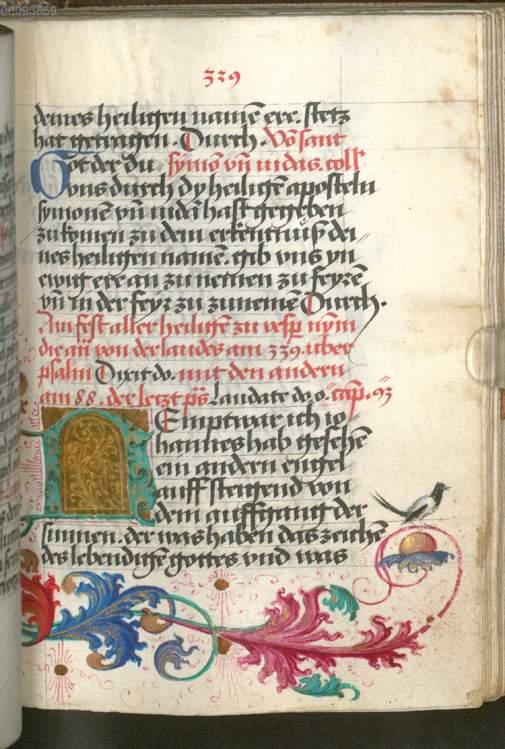 00093669
339
deines heiligen namē ere. stetz
hat getragen. Durch. Vō sant
Got der du symō vn̄ iudas. coll
vns durch dy heiligē aposteln
symonē vn̄ iudā hast gegeben
zukomen zu dem erkentnuß dei
nes heiligen namē. gib vns yn
ewig ere an zu nemen zu feyrē
vn̄ in der feyr zu zunemē Durch.
Am fest aller heiligē zu vesp nym
die an̄ von der laudes am 339. vber
psalm Dixit do. mit den andern
am 88. der letzt ps Laudate do. o. cap.
Nemptwar ich io
hannes hab gesehē
ein andern engel
auff steigend von
dem auffgang der
sunnen. der was haben das zeichē
des lebendigē gottes vnd was